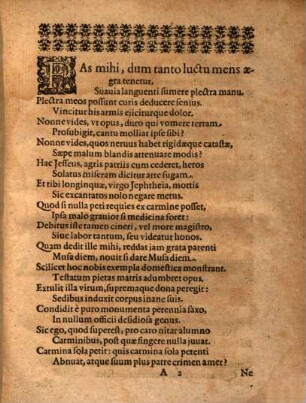 FAs mihi, dum tanto luctu mens æ-
gra tenetur,
Suauia languenti sumere plectra manu.
Plectra meos possunt curis deducere senius.
Vincitur his armis eiiciturque dolor.
Nonne vides, vt opus, duro qui vomere terram
Prosubigit, cantu molliat ipse sibi?
Nonne vides, quos neruus habet rigidæque catastæ,
Sæpe malum blandis attenuare modis?
Hac Iesseus, agris patriis cum cederet, heros
Solatus miseram dicitur arte fugam.
Et tibi longinquæ, virgo Jephtheia, mortis
Sic excantatos nolo negare metus.
Quod si nulla peti requies ex carmine posset,
Ipsa malo grauior si medicina foret:
Debitus iste tamen cineri, vel more magistro,
Siue labor tantum, seu videatur honos.
Quam dedit ille mihi, reddat jam grata parenti
Musa diem, nouit si dare Musa diem.
Scilicet hoc nobis exempla domestica monstrant.
Testatum pietas matris adumbret opus.
Extulit illa virum, supremaque dona peregit:
Sedibus induxit corpus inane suis.
Condidit è puro monumenta perennia saxo,
In nullum officii desidiosa genus.
Sic ego, quod superest, pro caro nitar alumno
Carminibus, post quæ fingere nulla juuat.
Carmina sola petit: quis carmina sola petenti
Abnuat, atque suum plus patre crimen amet?
A 2 Ne